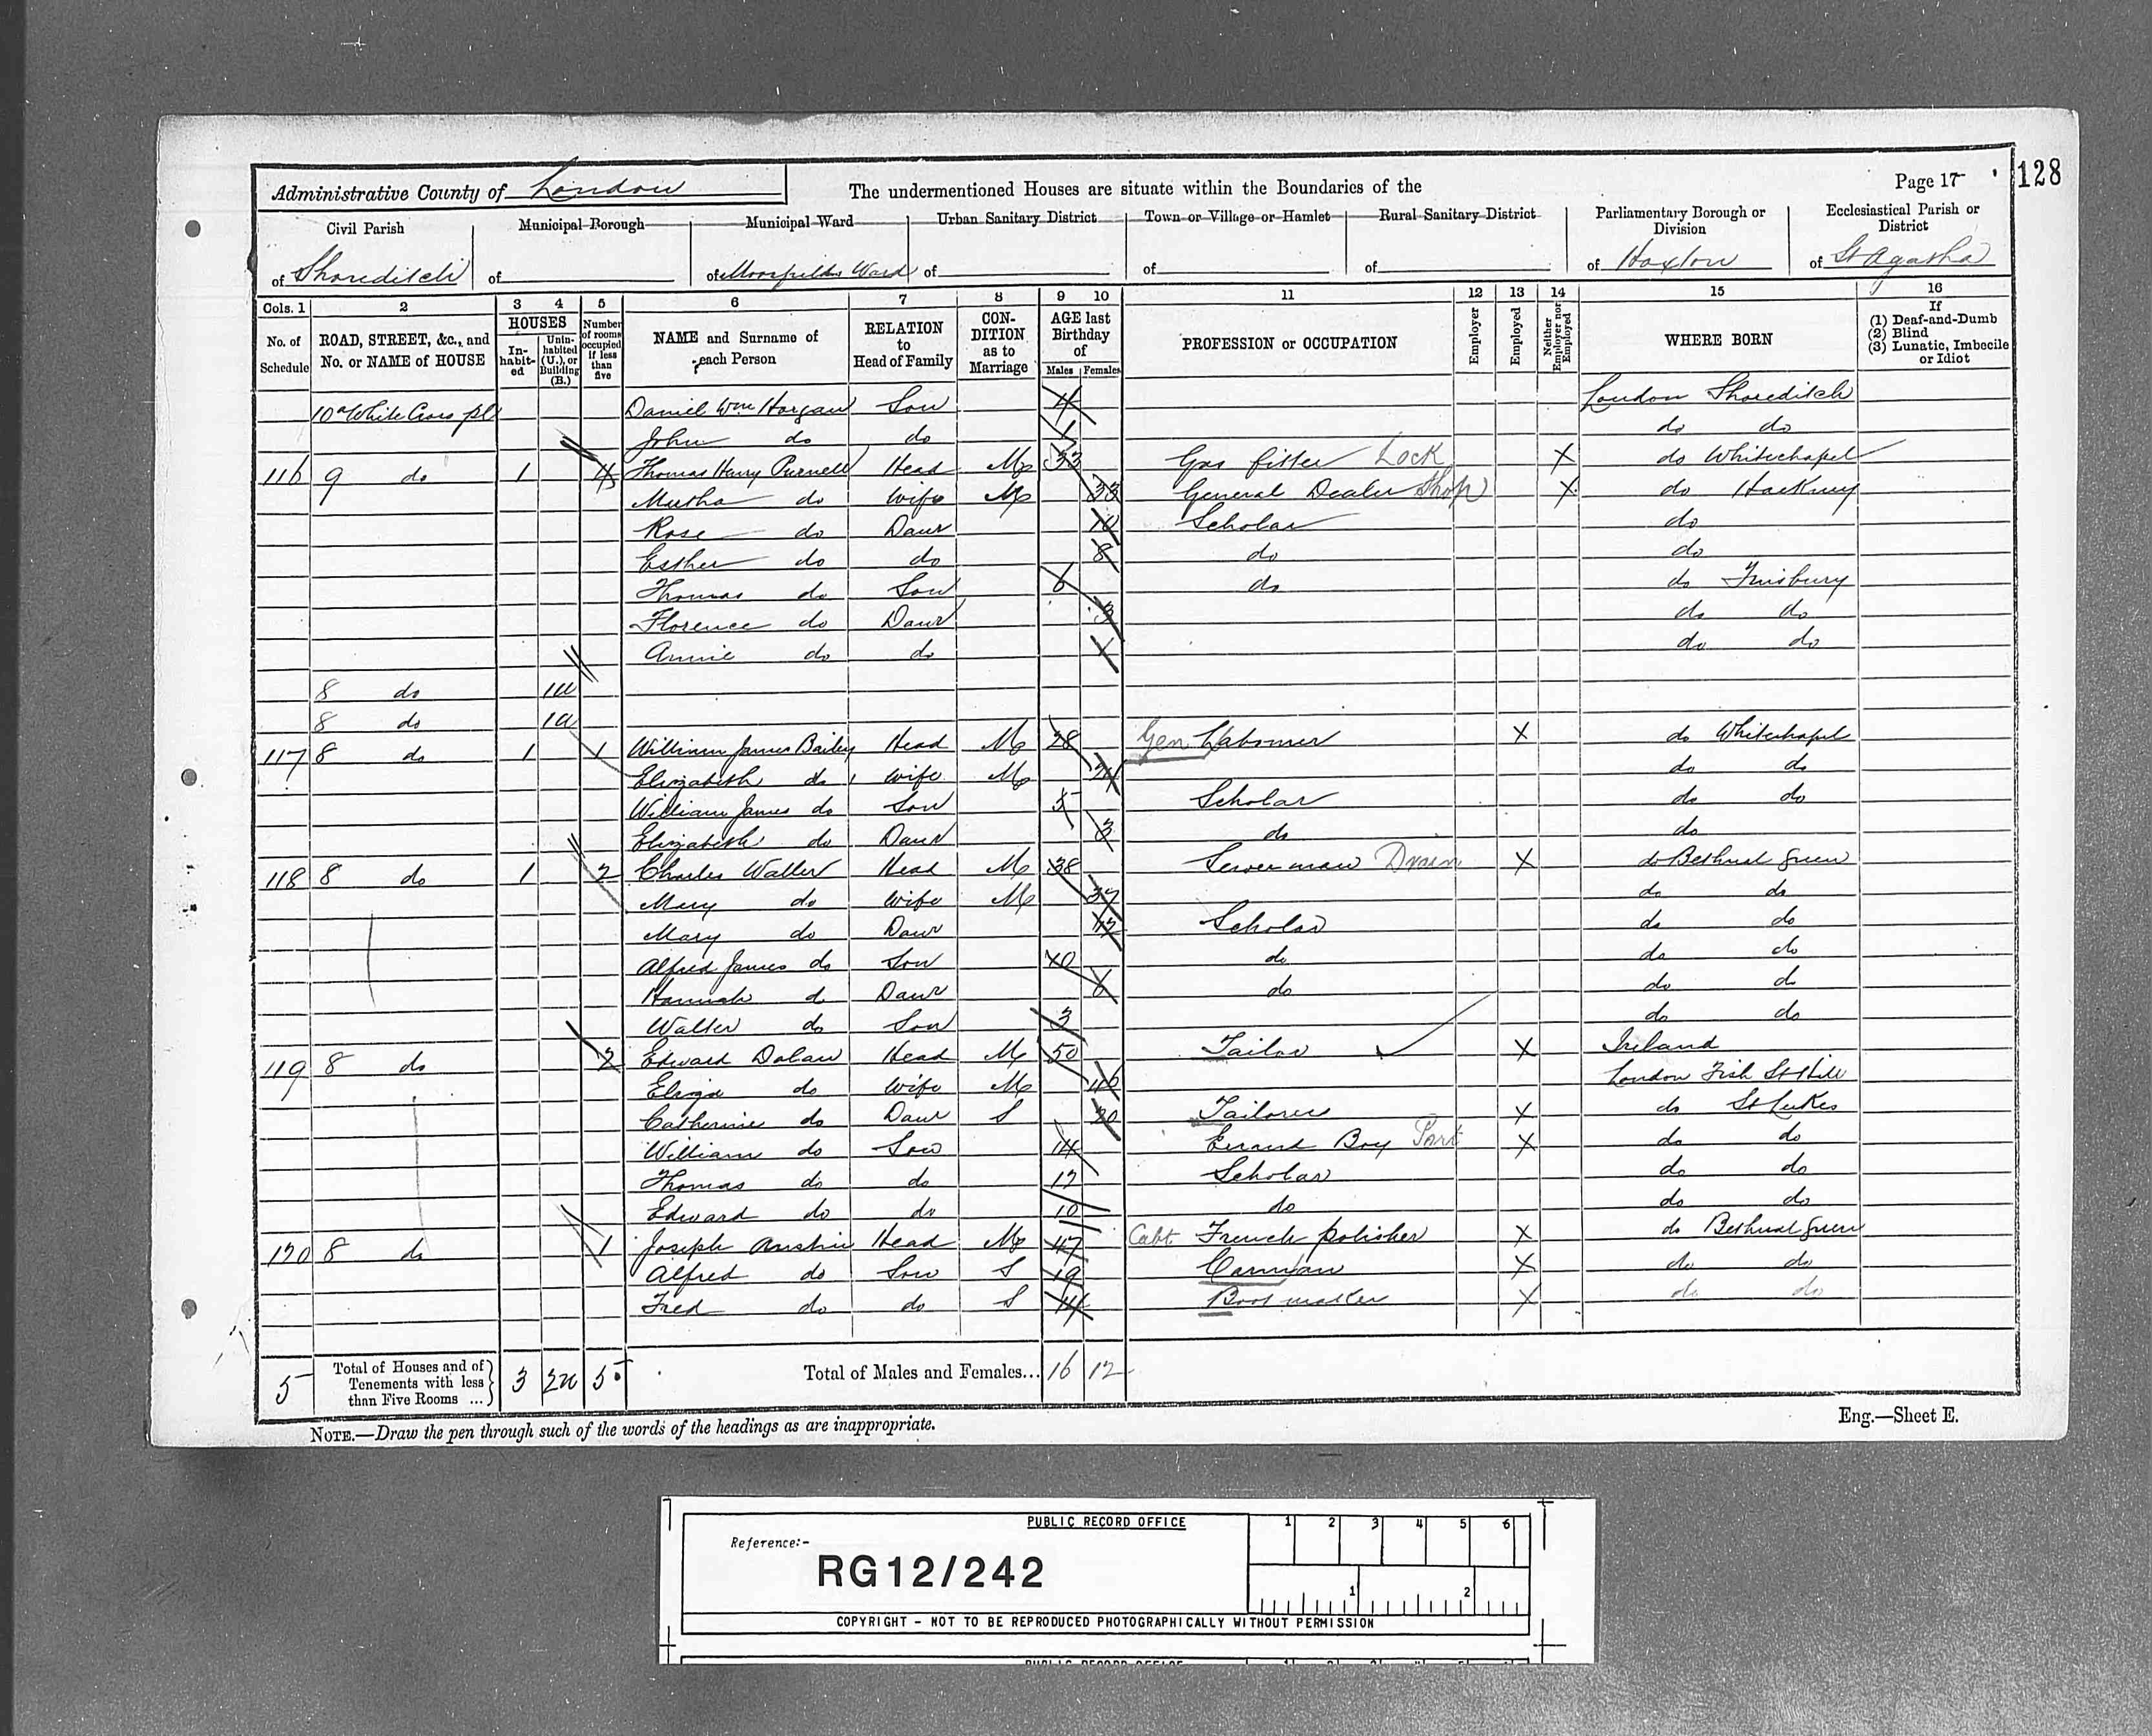 Administrative County of London
The undermentioned Houses are situate within the Boundaries of the
Page 17
128
Civil Parish
Municipal Borough
Municipal Ward
Urban Sanitary District
Town or Village or Hamlet
Rural Sanitary District
Parliamentary Borough or Division
Ecclesiastical Parish or District
of Shoreditch
of
of Moorfields Ward
of
of
of
of Hoxton
of St Agatha
Cols. 1 2 3 4 5 6 7 8 9 10 11 12 13 14 15 16
No. of Schedule
ROAD, STREET, &c., and No. or NAME of HOUSE
HOUSES
In-habit-ed
Unin-habited (U.), or Building (B.)
Number of rooms occupied if less than five
NAME and Surname of each Person
RELATION to Head of Family
CON-DITION as to Marriage
AGE last Birthday of
Males Females
PROFESSION or OCCUPATION
Employer
Employed
Neither Employer nor Employed
WHERE BORN
If
(1) Deaf-and-Dumb
(2) Blind
(3) Lunatic, Imbecile or Idiot
10a White Cross pl Daniel Wm Horgan Son 4 London Shoreditch
John do do 1 do do
116 9 do 1 4 Thomas Henry Purnell Head M 33 Gas fitter Lock X do Whitechapel
Martha do Wife M 33 General Dealer Shop X do Hackney
Rose do Daur 10 Scholar do
Esther do do 8 do do
Thomas do Son 6 do do Finsbury
Florence do Daur 3 do do
Annie do do 1 do do
8 do 1U
8 do 1U
117 8 do 1 1 William James Bailey Head M 28 Gen Labourer X do Whitechapel
Elizabeth do Wife M do do
William James do Son 5 Scholar do do
Elizabeth do Daur 3 do do
118 8 do 1 2 Charles Waller Head M 38 Sewer man Drain X do Bethnal Green
Mary do Wife M 37 do do
Mary do Daur 12 Scholar do do
Alfred James do Son 10 do do do
Hannah do Daur 6 do do do
Walter do Son 3 do do
119 8 do 2 Edward Dolan Head M 50 Tailor X Ireland
Eliza do Wife M 46 London Fish St Hill
Catherine do Daur S 20 Tailoress X do St Lukes
William do Son 14 Errand Boy Port X do do
Thomas do do 12 Scholar do do
Edward do do 10 do do do
120 8 do 1 Joseph Austin Head M 47 Cabt French polisher X do Bethnal Green
Alfred do Son S 19 Carman X do do
Fred do do S Boot maker X do do
5 Total of Houses and of Tenements with less than Five Rooms ... 3 2U 5 Total of Males and Females... 16 12
NOTE.—Draw the pen through such of the words of the headings as are inappropriate.
Eng.—Sheet E.
PUBLIC RECORD OFFICE
1 2 3 4 5 6
Reference:-
RG12/242
1 2
COPYRIGHT - NOT TO BE REPRODUCED PHOTOGRAPHICALLY WITHOUT PERMISSION
PUBLIC RECORD OFFICE